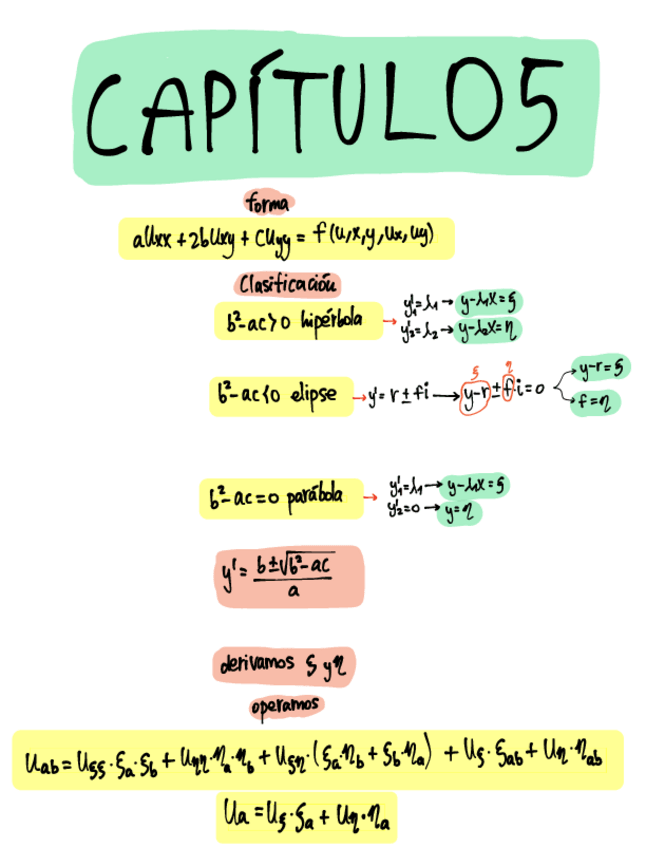 CAPÍTULO 5
forma
aUxx + 2bUxy + CUyy = f(u,x,y,ux,uy)
Clasificación
b²-ac>0 hipérbola → y'₁=λ₁ → y-λ₁x=ξ
y'₂=λ₂ → y-λ₂x=η
b²-ac<0 elipse → y'= r ± fi → y-r ± f·i=0
ξ η
y-r=ξ
f=η
b²-ac=0 parábola → y'₁=λ₁ → y-λ₁x=ξ
y'₂=0 → y=η
y' = (b±√(b²-ac))/a
derivamos ξ y η
operamos
Uab = Uξξ·ξa·ξb + Uηη·ηa·ηb + Uξη·(ξa·ηb + ξb·ηa) + Uξ·ξab + Uη·ηab
Ua = Uξ·ξa + Uη·ηa